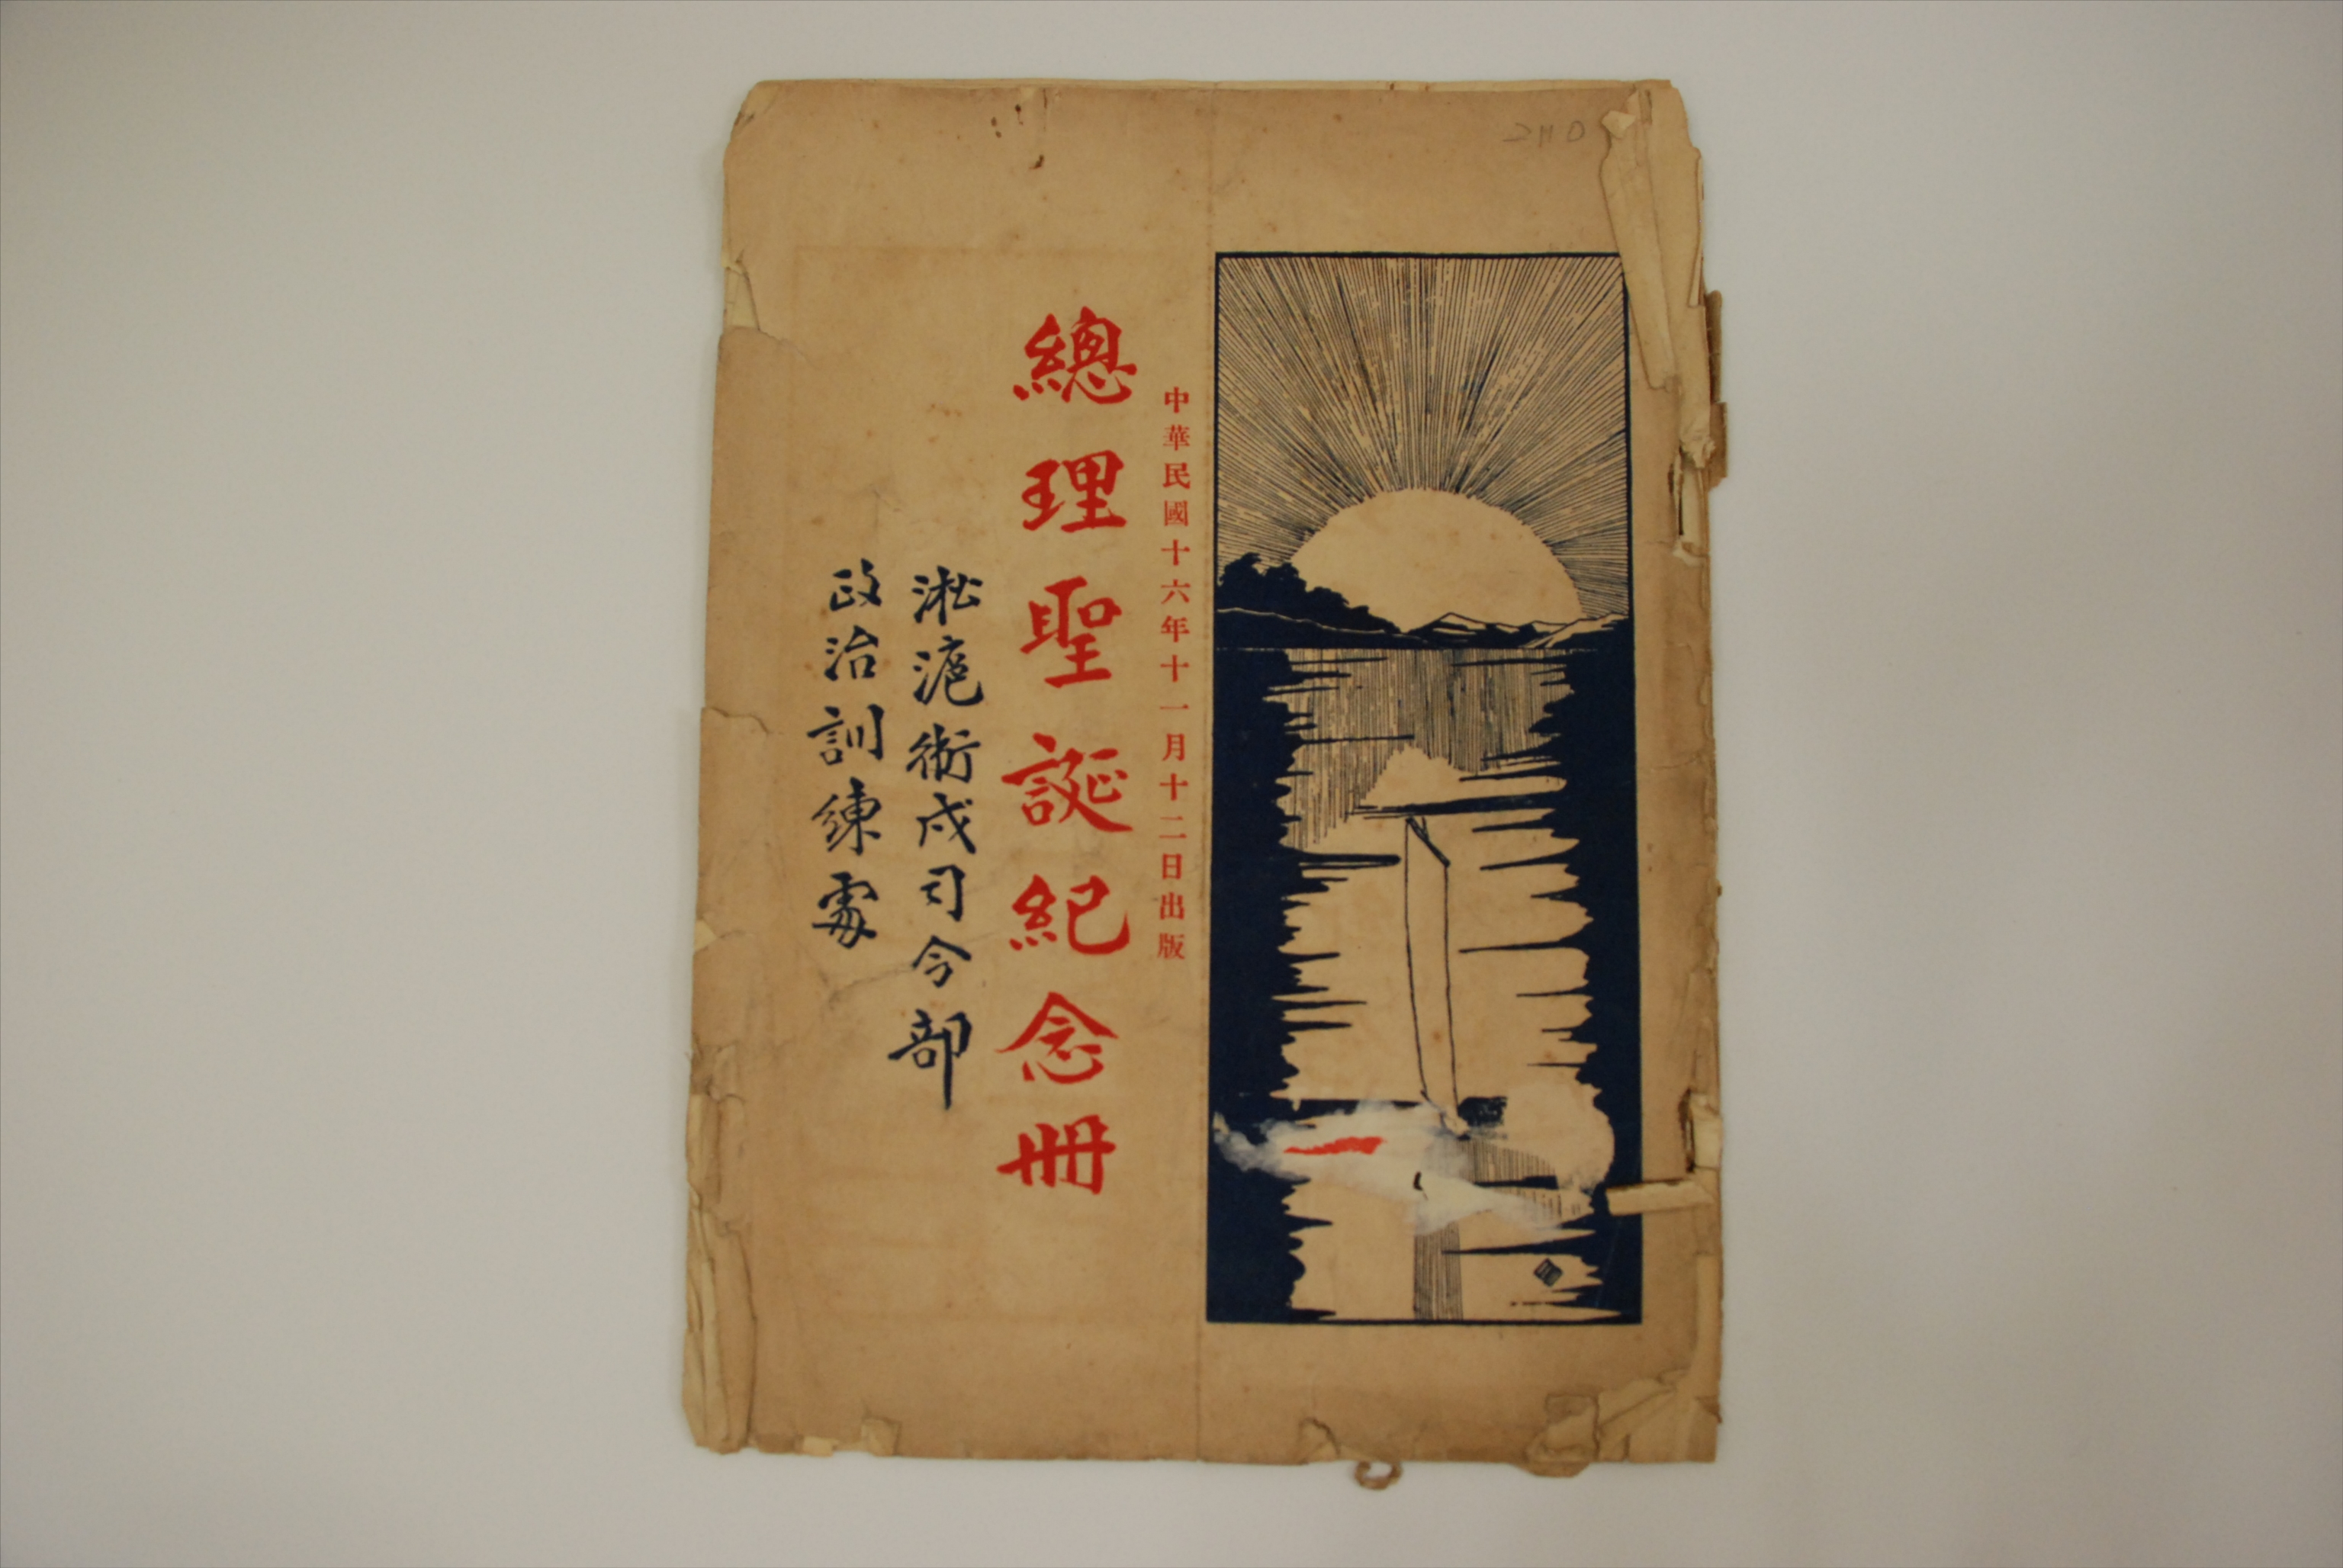 中華民國十六年十一月十二日出版
總理聖誕紀念冊
淞滬衛戍司令部
政治訓練處